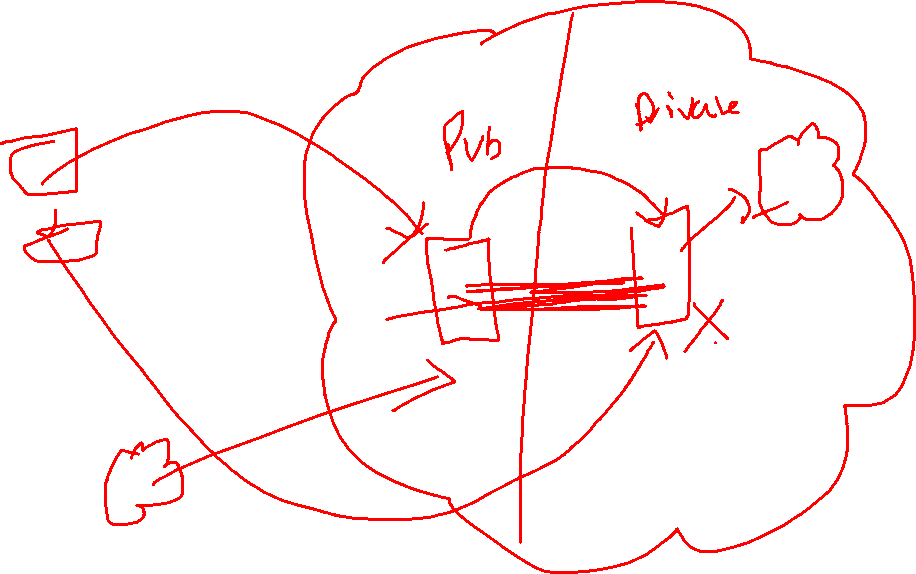 Pub
Private